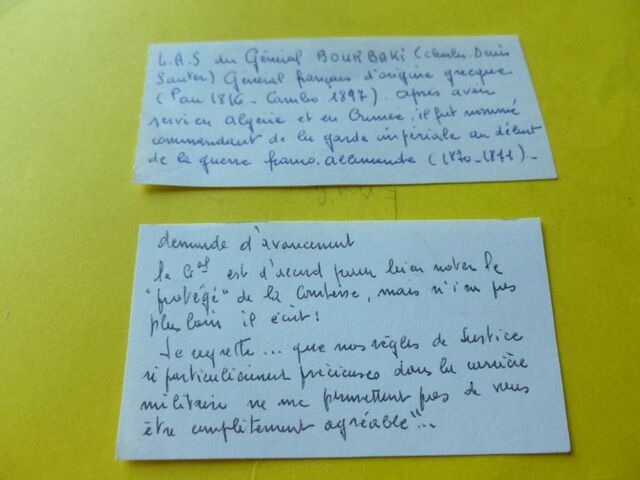 L.A.S du Général BOURBAKI (Charles. Denis
Sauter) Général français d'origine grecque
(Pau 1816 - Cambo 1897). après avoir
servi en Algérie et en Crimée, il fut nommé
commandant de la garde impériale au début
de la guerre franco. allemande (1870-1871)_
demande d'avancement
le Gal est d'accord pour bien noter le
"protégé" de la Comtesse, mais n'ira pas
plus loin il écrit:
Je regrette... que nos règles de Justice
si particulièrement précieuses dans la carrière
militaire ne me permettent pas de vous
être complètement agréable"...